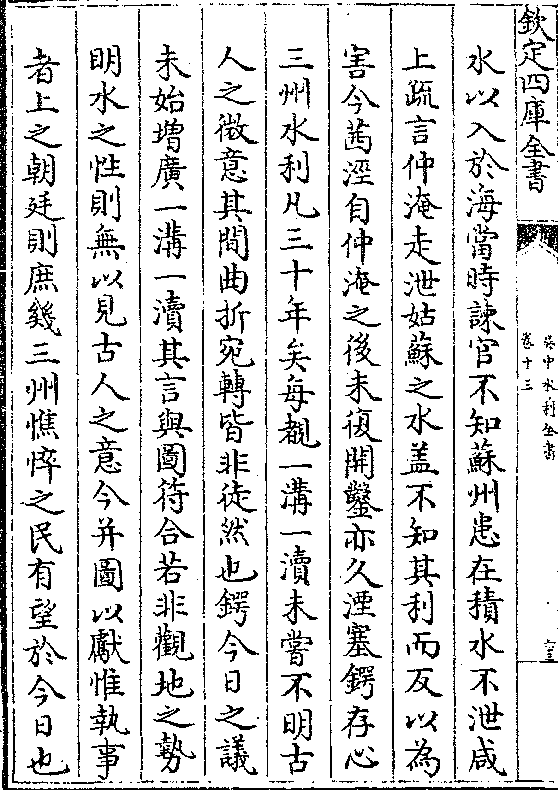 欽定四庫全書
吳中水利全書
卷十三
水以入於海當時諫官不知蘇州患在積水不泄咸
上疏言仲淹走泄姑蘇之水盖不知其利而反以為
害今茜涇自仲淹之後未復開鑿亦久湮塞鍔存心
三州水利凡三十年矣每觀一溝一瀆未嘗不明古
人之微意其間曲折宛轉皆非徒然也鍔今日之議
未始增廣一溝一瀆其言與圖符合若非觀地之勢
明水之性則無以見古人之意今并圖以獻惟執事
者上之朝廷則庶幾三州憔悴之民有望於今日也